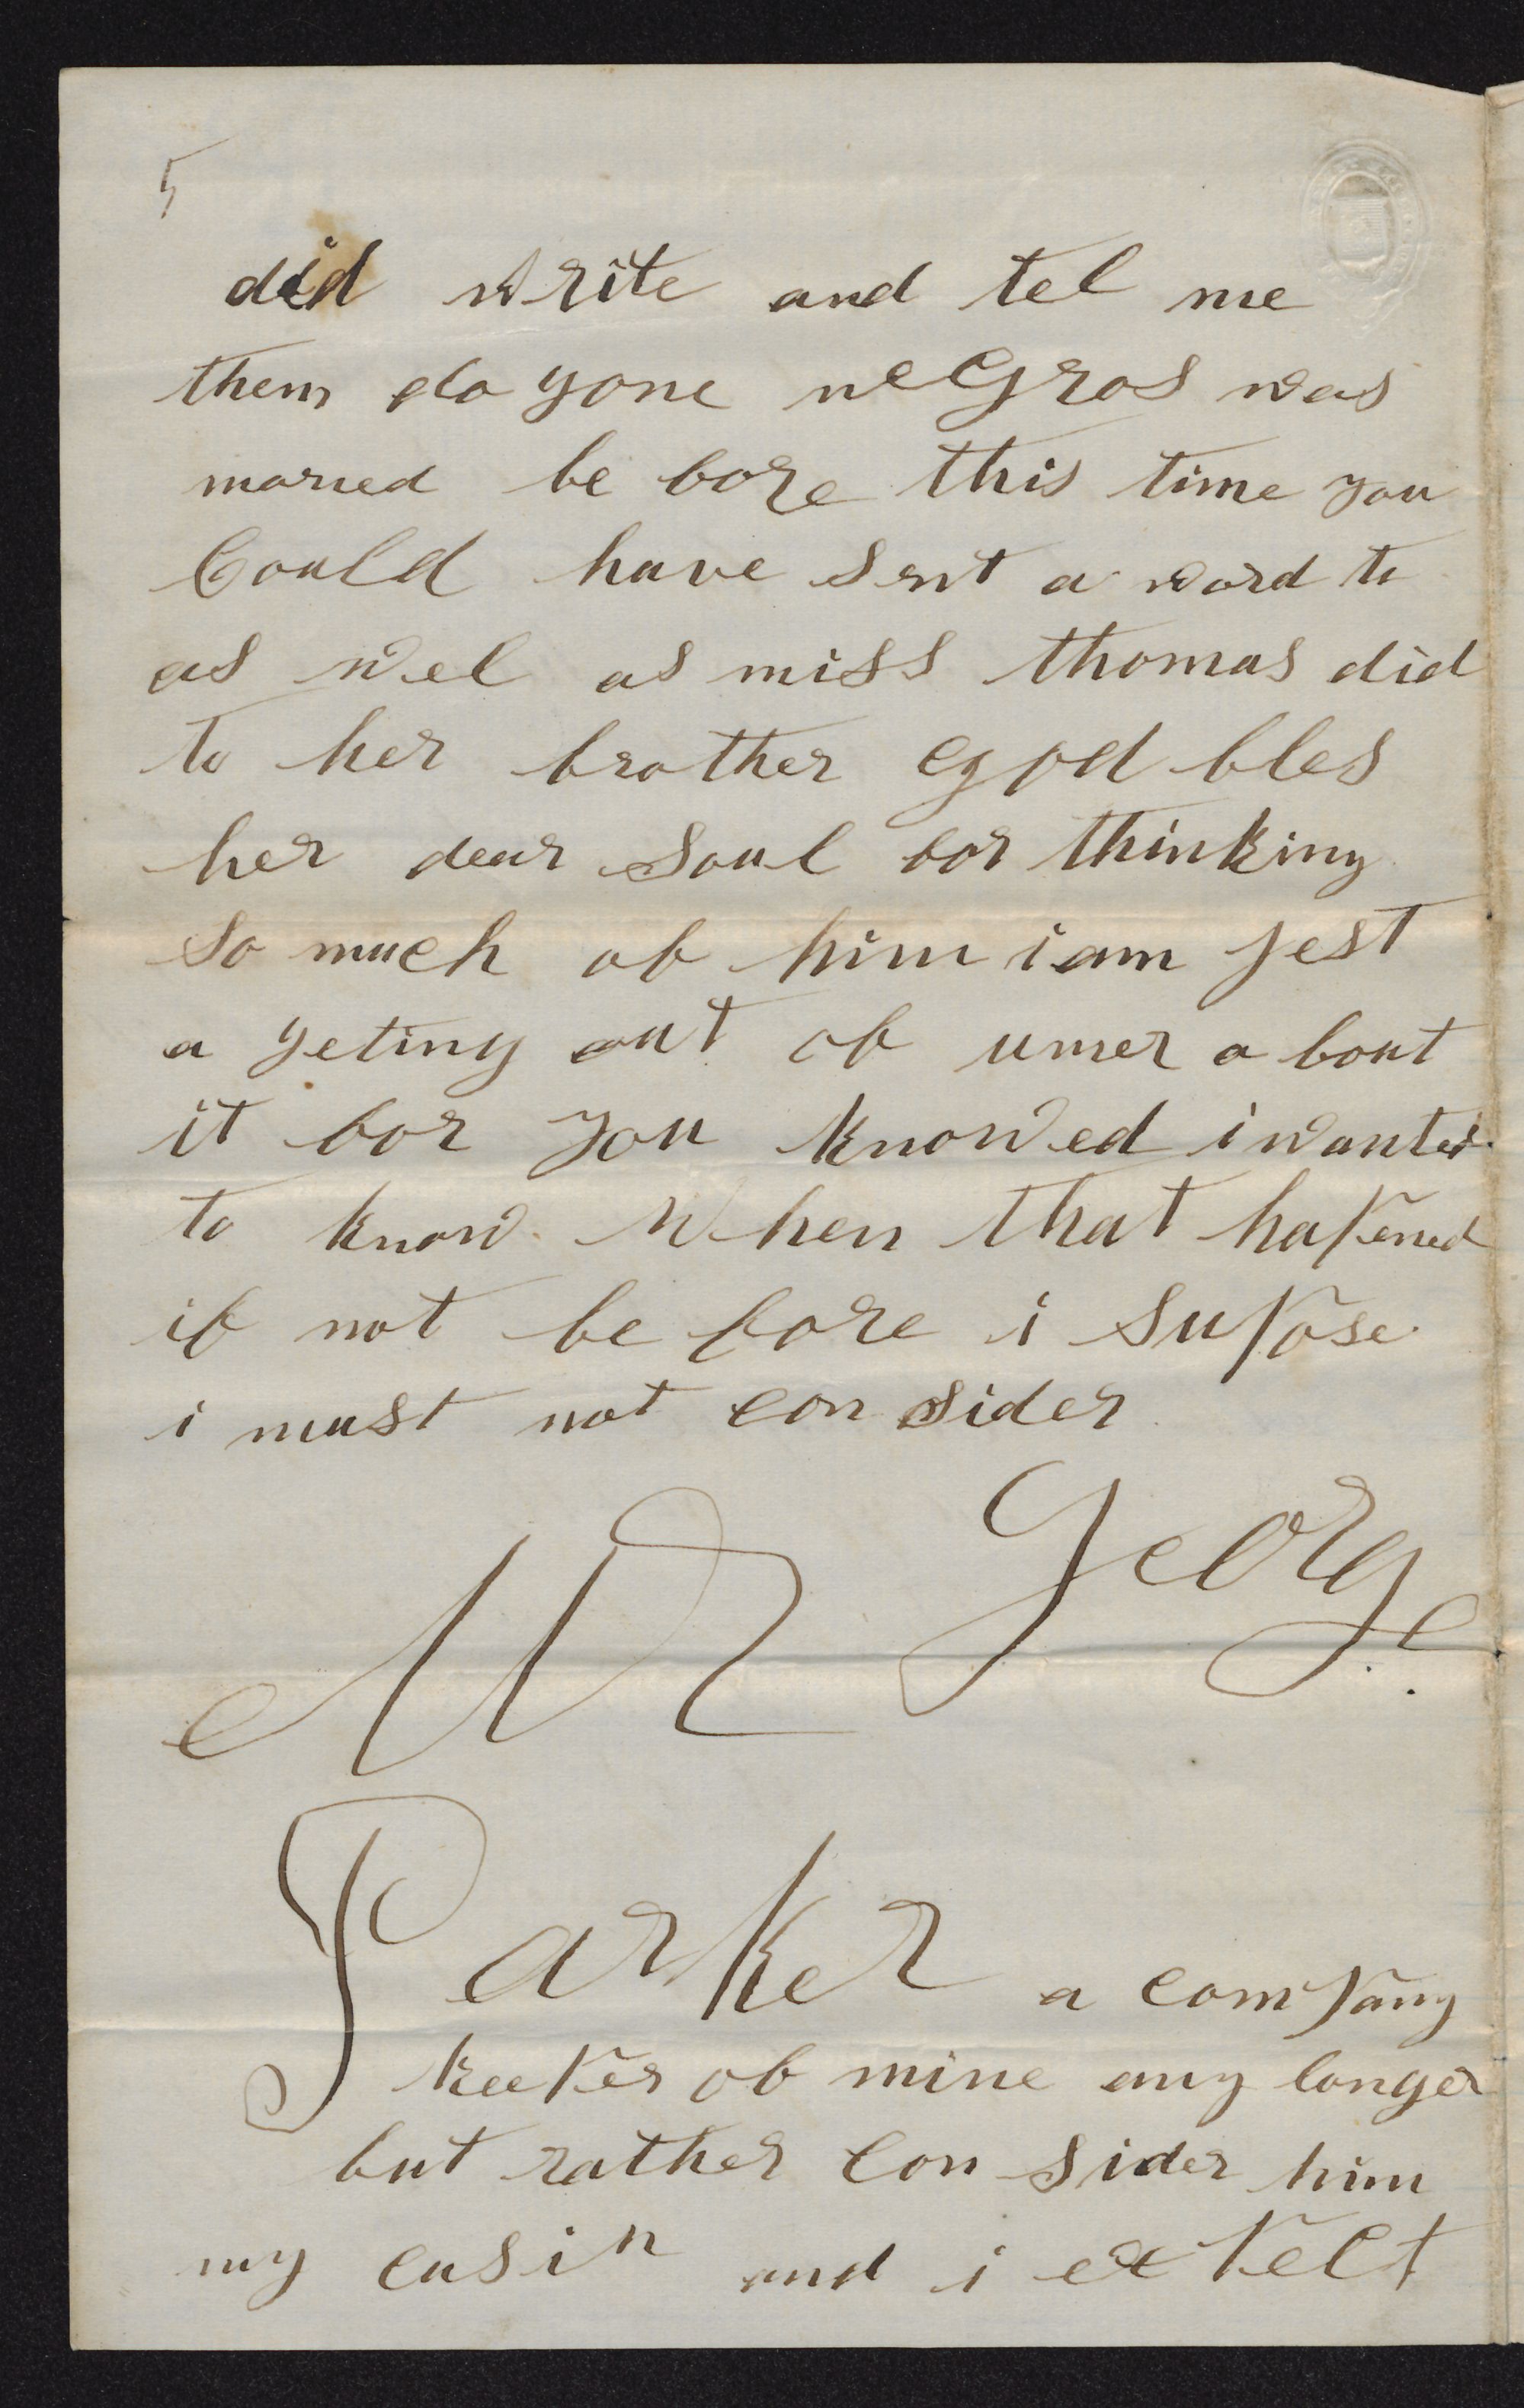 5
did write and tel me
them do gone negros was
maried be fore this time you
Could have sent a word to
as wel as miss thomas did
to her brother god bles
her dear Soul for thinking
So much of him i am jest
a geting out of umer a bout
it for you knowed i wanted
to know when that hapened
if not be fore i Supose
i must not con sider
Mr George
Parker a company
keeper of mine any longer
but rather Con sider him
my cusin and i expect